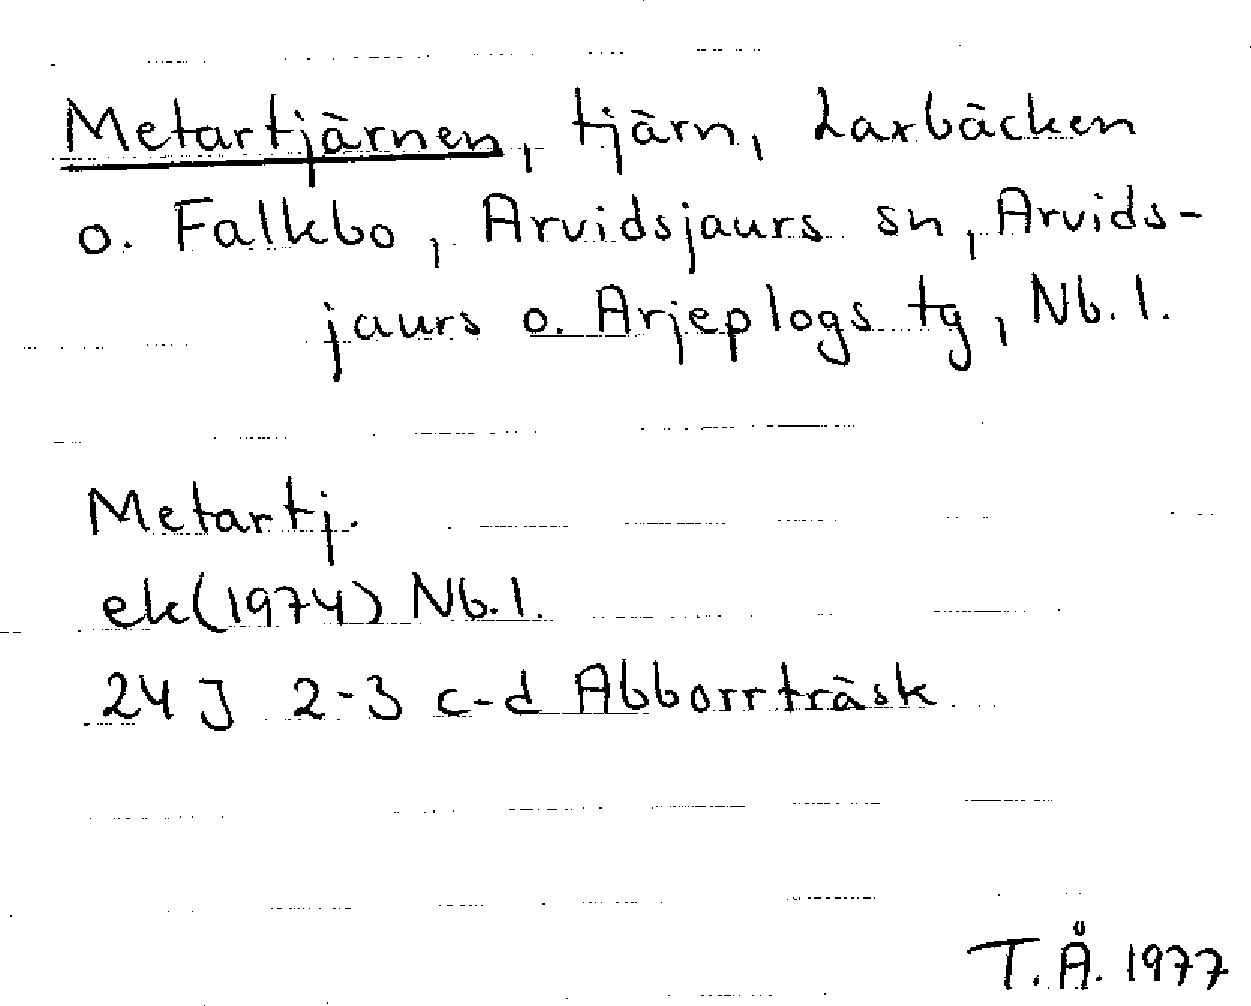 Metartjärnen, tjärn, Laxbäcken
o. Falkbo, Arvidsjaurs sn, Arvids-
jaurs o. Arjeplogs tg, Nb. l.
Metartj.
ek(1974) Nb. l.
24 J 2-3 c-d Abborrträsk
T.Å. 1977